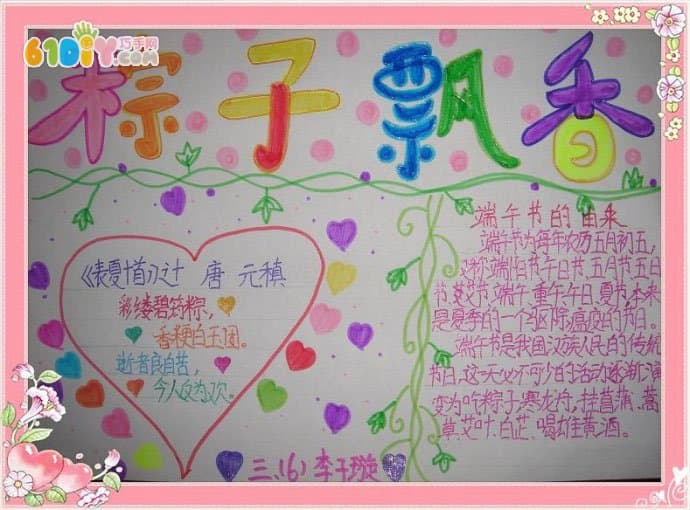 61DIY.com
巧手网
粽子飘香
《表夏十首》之计 唐 元稹
彩缕碧筠粽,
香粳白玉团。
逝者良自苦,
今人反为欢。
三、(6) 李子璇
端午节的由来
端午节为每年农历五月初五,
又称端阳节、午日节、五月节、五日
节、艾节、端午、重午、午日、夏节,本来
是夏季的一个驱除瘟疫的节日。
端午节是我国汉族人民的传统
节日、这一天必不可少的活动逐渐演
变为吃粽子、赛龙舟、挂菖蒲、蒿
草、艾叶、白芷、喝雄黄酒。